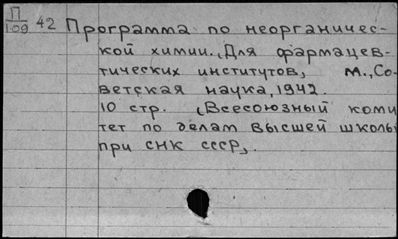 П
109
42 Программа по неорганичес-
кой химии. (Для фармацев-
тических институтов) М., Со-
ветская наука, 1942.
10 стр. (Всесоюзный коми
тет по делам высшей школы
при СНК СССР).